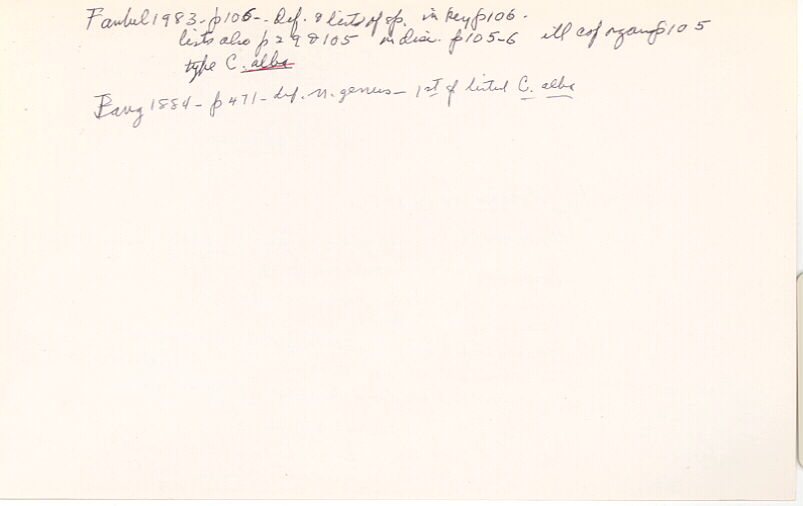 Faubel 1983 - p106 - Def. & lists of sp. in key p106.
lists also p 29 & 105 in disc. p105-6 ill cop organ p105
type C. alba
Bang 1884 - p 471 - def. n. genus - 1st of listed C. alba